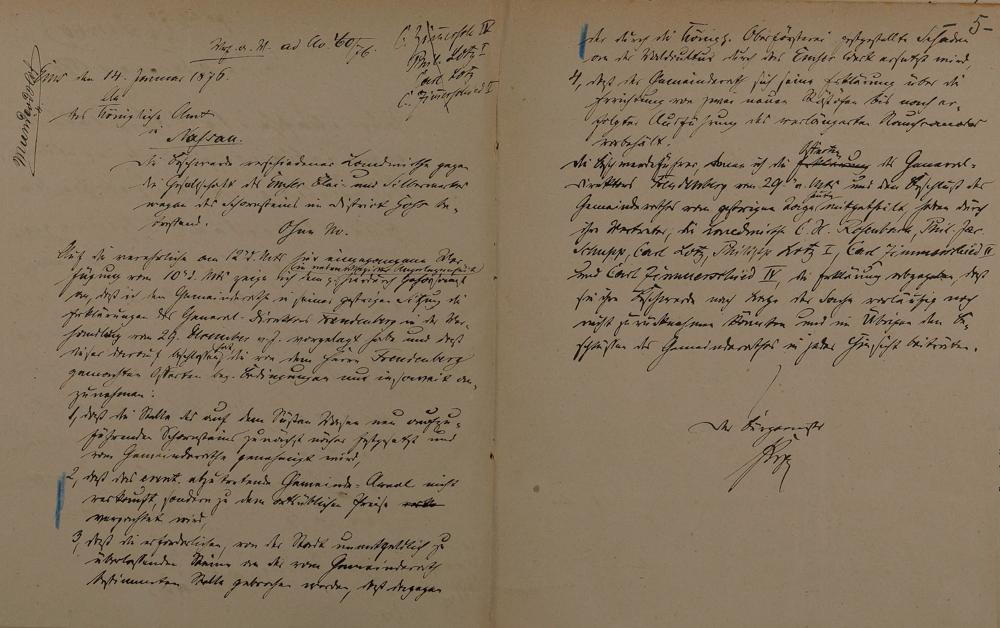 ad No 60/76.
C. Zimmerschied IV
Phil. Lotz I
Carl Lotz
C. Zimmerschied II
Mundirt
Ems den 14. Januar 1876.
An
das Königliche Amt
in
Nassau.
Die Beschwerde verschiedener Landwirthe gegen
die Gesellschaft des Emser Blei- und Silberwerks
wegen des Schornsteins im District
Ohne No.
Auf die verehrliche am 12 d. Mts hier eingegangene Ver-
fügung vom 10 d. Mts zeige ich
an, daß ich dem Gemeinderathe in seiner gestrigen Sitzung die
Erklärungen des General-Direktors Freudenberg in der Ver-
handlung vom 29. December v. J. vorgelegt habe und daß
dieser darauf beschlossen hat die von dem Herrn Freudenberg
gemachten Offerten bez. Bedingungen nur insoweit an-
zunehmen:
1, daß die Stelle des auf dem neu aufzu-
führenden Schornsteins zunächst näher festgesetzt und
vom Gemeinderathe genehmigt wird,
2, daß das event. abzutretende Gemeinde-Areal nicht
verkauft, sondern zu dem ortsüblichen Preise
verpachtet wird,
3, daß die erforderlichen, von der Stadt unentgeldlich zu
überlassenden Steine an der vom Gemeinderath
bestimmten Stelle gebrochen werden, daß dagegen
5
der durch die Königl. Oberförsterei festgestellte Schaden
an der Waldkultur durch das Emser Werk ersetzt wird,
4, daß der Gemeinderath sich seine Erklärung über die
Errichtung von zwei neuen Röstöfen bis nach er-
folgter Ausführung des verlängerten Rauchcanales
vorbehält.
Die Beschwerdeführer denen ich die Offerten des General-
Direktors Freudenberg vom 29 v. Mts und den Beschluß des
Gemeinderathes vom gestrigen Tage heute mitgetheilt, haben durch
ihre Vertreter, die Landwirthe C. W. Rosenbach, Phil. Jac.
Schupp, Carl Lotz, Philipp Lotz I, Carl Zimmerschied II
und Carl Zimmerschied IV, die Erklärung abgegeben, daß
sie ihre Beschwerde nach Lage der Sache vorläufig noch
nicht zurücknehmen könnten und im Übrigen den Be-
schlüssen des Gemeinderathes in jeder Hinsicht beiträten.
Der Bürgermeister